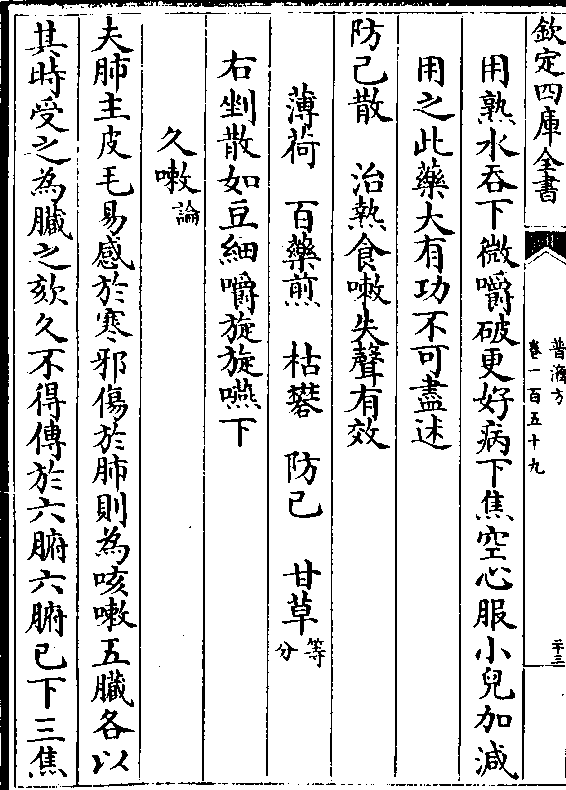 欽定四庫全書
普濟方
卷一百五十九
二十三
用熟水吞下微嚼破更好病下焦空心服小兒加減
用之此藥大有功不可盡述
防己散　治熱食嗽失聲有效
薄荷　百藥煎　枯礬　防己　甘草等分
右剉散如豆細嚼旋旋嚥下
久嗽論
夫肺主皮毛易感於寒邪傷於肺則為咳嗽五臟各以
其時受之為臟之欬久不得傳於六腑六腑已下三焦